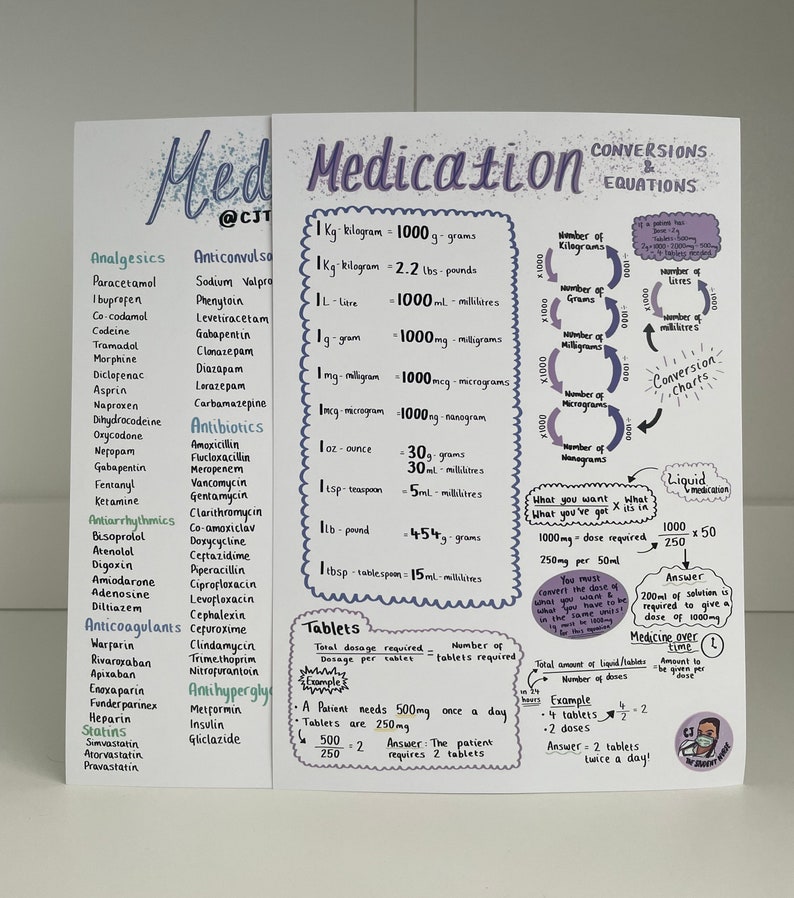 Med
@CJT
Analgesics
Paracetamol
Ibuprofen
Co-codamol
Codeine
Tramadol
Morphine
Diclofenac
Asprin
Naproxen
Dihydrocodeine
Oxycodone
Nefopam
Gabapentin
Fentanyl
Ketamine
Antiarrhythmics
Bisoprolol
Atenolol
Digoxin
Amiodarone
Adenosine
Diltiazem
Anticoagulants
Warfarin
Rivaroxaban
Apixaban
Enoxaparin
Funderparinex
Heparin
Statins
Simvastatin
Atorvastatin
Pravastatin
Anticonvulso
Sodium Valpro
Phenytoin
Levetiracetam
Gabapentin
Clonazepam
Diazapam
Lorazepam
Carbamazepine
Antibiotics
Amoxicillin
Flucloxacillin
Meropenem
Vancomycin
Gentamycin
Clarithromycin
Co-amoxiclav
Doxycycline
Ceftazidime
Piperacillin
Ciprofloxacin
Levofloxacin
Cephalexin
Cefuroxime
Clindamycin
Trimethoprim
Nitrofurantoin
Antihyperglyc
Metformin
Insulin
Gliclazide
Medication
CONVERSIONS
&
EQUATIONS
1 Kg-kilogram = 1000g - grams
1 Kg-kilogram = 2.2 lbs - pounds
1 L - litre = 1000mL - millilitres
1 g - gram = 1000mg - milligrams
1 mg - milligram = 1000mcg - micrograms
1 mcg - microgram = 1000ng - nanogram
1 oz - ounce = 30g - grams
30mL - millilitres
1 tsp - teaspoon = 5mL - millilitres
1 lb - pound = 454g - grams
1 tbsp - tablespoon = 15mL - millilitres
Tablets
Total dosage required = Number of
Dosage per tablet tablets required
Example
• A Patient needs 500mg once a day
• Tablets are 250mg
500
250 = 2
Answer: The patient
requires 2 tablets
Number of
Kilograms
x1000
÷1000
Number of
Grams
x1000
÷1000
Number of
Milligrams
x1000
÷1000
Number of
Micrograms
x1000
÷1000
Number of
Nanograms
If a patient has:
Dose = 2g
Tablets = 500mg
2g = 1000 = 2,000mg ÷ 500mg
= 4 tablets needed
Number of
litres
x1000
÷1000
Number of
millilitres
Conversion
charts
Liquid
medication
What you want x What
What you've got its in
1000mg = dose required
250mg per 50ml
1000
250 x 50
You must
convert the dose of
what you want &
what you have to be
in the same units!
1g must be 1000mg
for this equation
Answer
200ml of solution is
required to give a
dose of 1000mg
Medicine over
time
Total amount of liquid/tablets = Amount to
Number of doses be given per
dose
in 24
hours
Example
• 4 tablets
• 2 doses
4
2 = 2
Answer = 2 tablets
twice a day!
CJ
THE STUDENT NURSE